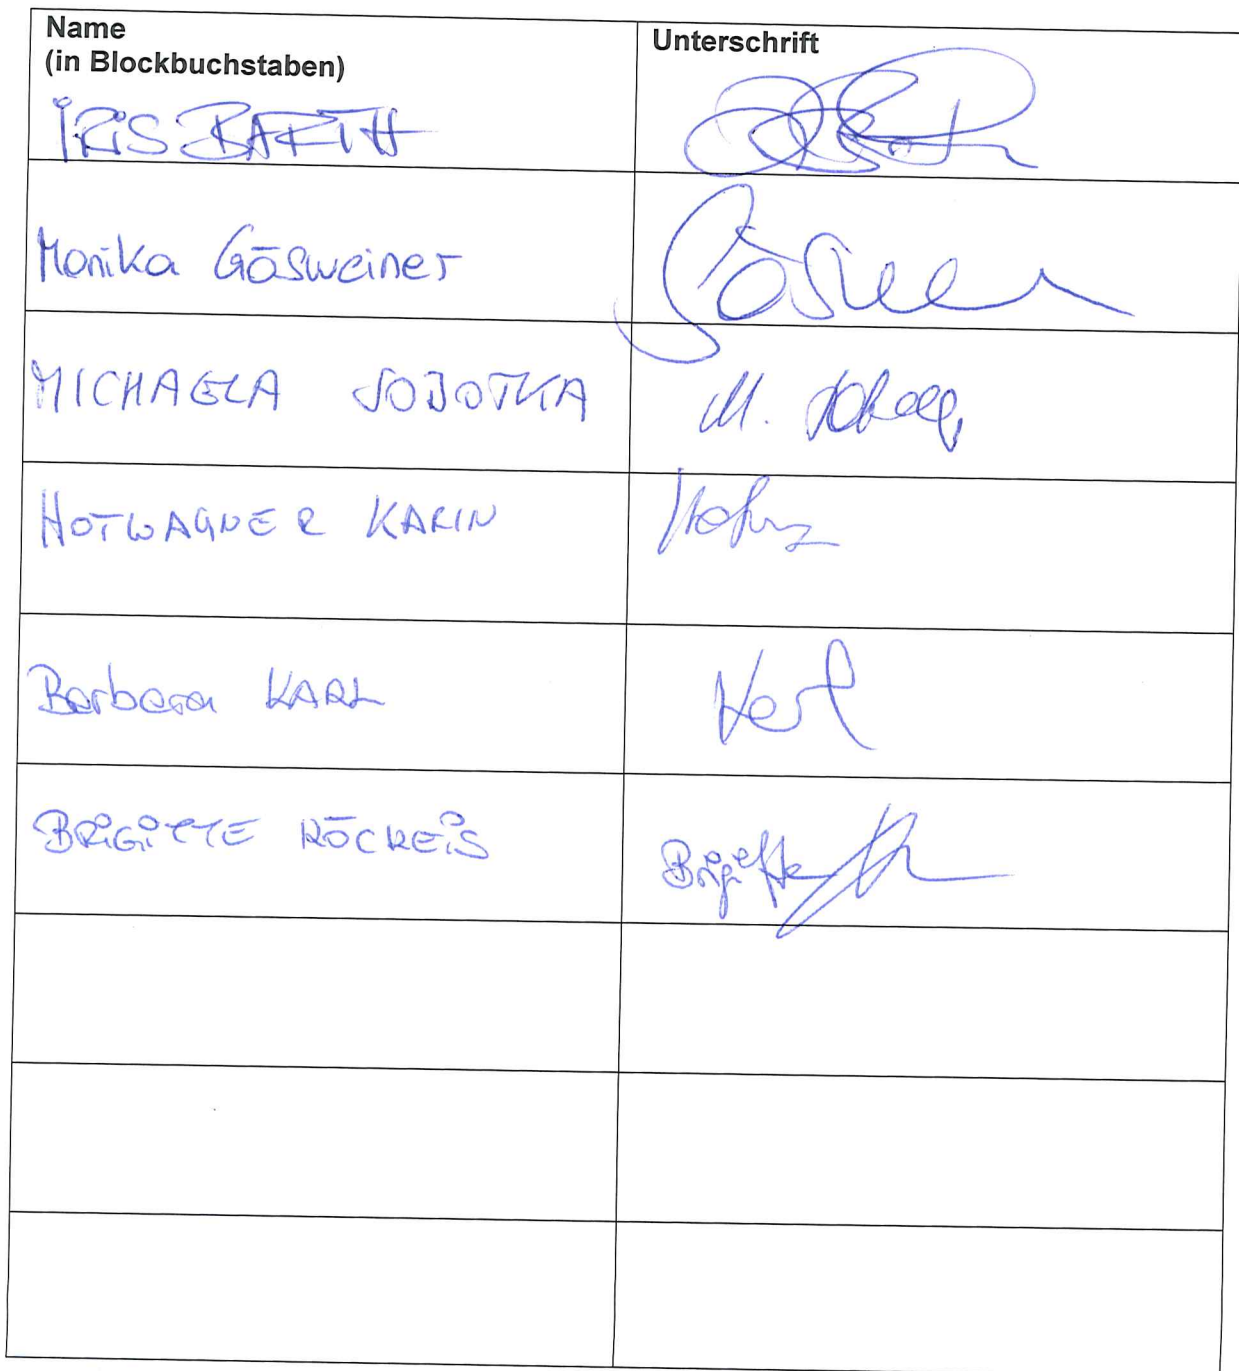 Name
(in Blockbuchstaben)
Unterschrift
IRIS BARTH
Monika Gösweiner
MICHAELA SOBOTKA
M.
HOTWAGNER KARIN
Barbara KARL
Karl
BRIGITTE RÖCKEIS
Brigitte